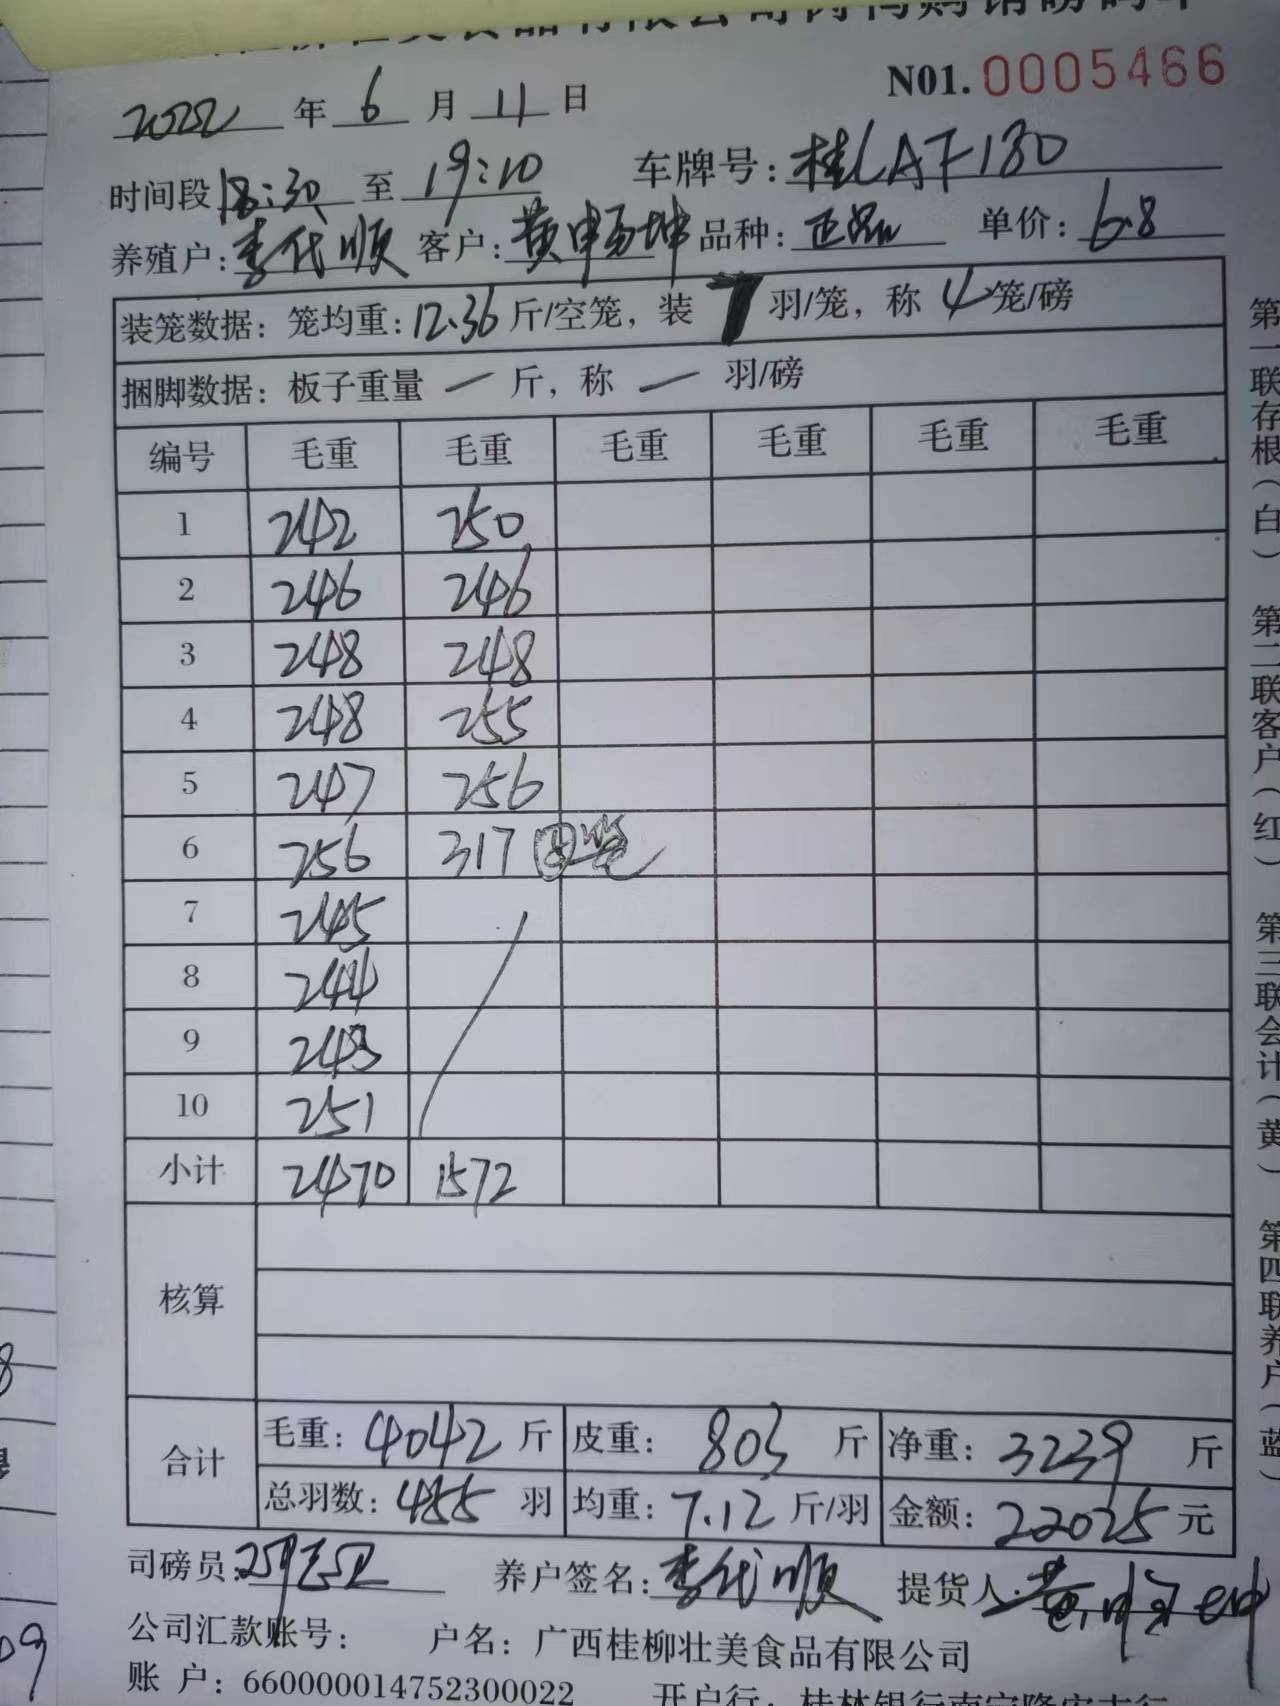 食品有限公司肉鸡购销磅码单
N01.0005466
2022年6月11日
时间段18:30至19:10 车牌号:桂LAF130
养殖户:李代顺 客户:黄申易坤 品种:正品 单价:6.8
装笼数据:笼均重:12.36斤/空笼,装7羽/笼,称4笼/磅
捆脚数据:板子重量 一 斤,称 一 羽/磅
编号 毛重 毛重 毛重 毛重 毛重 毛重
1 242 250
2 246 246
3 248 248
4 248 255
5 247 256
6 256 317 笼
7 245
8 244
9 243
10 251
小计 2470 1572
核算
合计 毛重:4042斤 皮重:803斤 净重:3239斤
总羽数:455羽 均重:7.12斤/羽 金额:22025元
司磅员: 养户签名:李代顺 提货人:
公司汇款账号: 户名:广西桂柳壮美食品有限公司
账 户:660000014752300022 开户行:桂林银行南宁隆安支行
第一联存根(白) 第二联客户(红) 第三联会计(黄) 第四联养户(蓝)
8
09